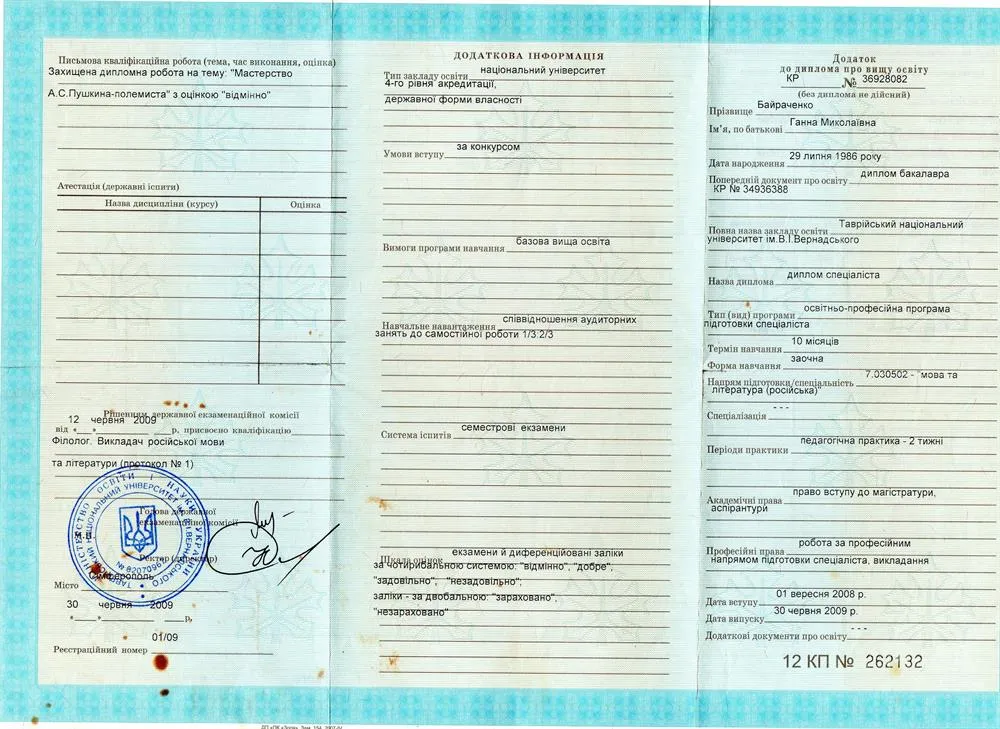 Письмова кваліфікаційна робота (тема, час виконання, оцінка)
Захищена дипломна робота на тему: "Мастерство
А.С.Пушкина-полемиста" з оцінкою "відмінно"
Атестація (державні іспити)
Назва дисципліни (курсу) Оцінка
Рішенням державної екзаменаційної комісії
від «12» червня 2009 р. присвоєно кваліфікацію
Філолог. Викладач російської мови
та літератури (протокол № 1)
Голова державної
екзаменаційної комісії
М.П.
Ректор (директор)
МІНІСТЕРСТВО ОСВІТИ І НАУКИ УКРАЇНИ
ТАВРІЙСЬКИЙ НАЦІОНАЛЬНИЙ УНІВЕРСИТЕТ ІМ. В.І.ВЕРНАДСЬКОГО
Місто Сімферополь
«30» червня 2009 р.
Реєстраційний номер 01/09
ДОДАТКОВА ІНФОРМАЦІЯ
Тип закладу освіти національний університет
4-го рівня акредитації,
державної форми власності
Умови вступу за конкурсом
Вимоги програми навчання базова вища освіта
Навчальне навантаження співвідношення аудиторних
занять до самостійної роботи 1/3:2/3
Система іспитів семестрові екзамени
Шкала оцінок екзамени й диференційовані заліки
за чотирибальною системою: "відмінно", "добре",
"задовільно", "незадовільно";
заліки - за двобальною: "зараховано",
"незараховано"
Додаток
до диплома про вищу освіту
КР № 36928082
(без диплома не дійсний)
Прізвище Байраченко
Ім'я, по батькові Ганна Миколаївна
Дата народження 29 липня 1986 року
Попередній документ про освіту диплом бакалавра
КР № 34936388
Повна назва закладу освіти Таврійський національний
університет ім.В.І.Вернадського
Назва диплома диплом спеціаліста
Тип (вид) програми освітньо-професійна програма
підготовки спеціаліста
Термін навчання 10 місяців
Форма навчання заочна
Напрям підготовки/спеціальність 7.030502 - "мова та
література (російська)"
Спеціалізація ---
Періоди практики педагогічна практика - 2 тижні
Академічні права право вступу до магістратури,
аспірантури
Професійні права робота за професійним
напрямом підготовки спеціаліста, викладання
Дата вступу 01 вересня 2008 р.
Дата випуску 30 червня 2009 р.
Додаткові документи про освіту ---
12 КП № 262132